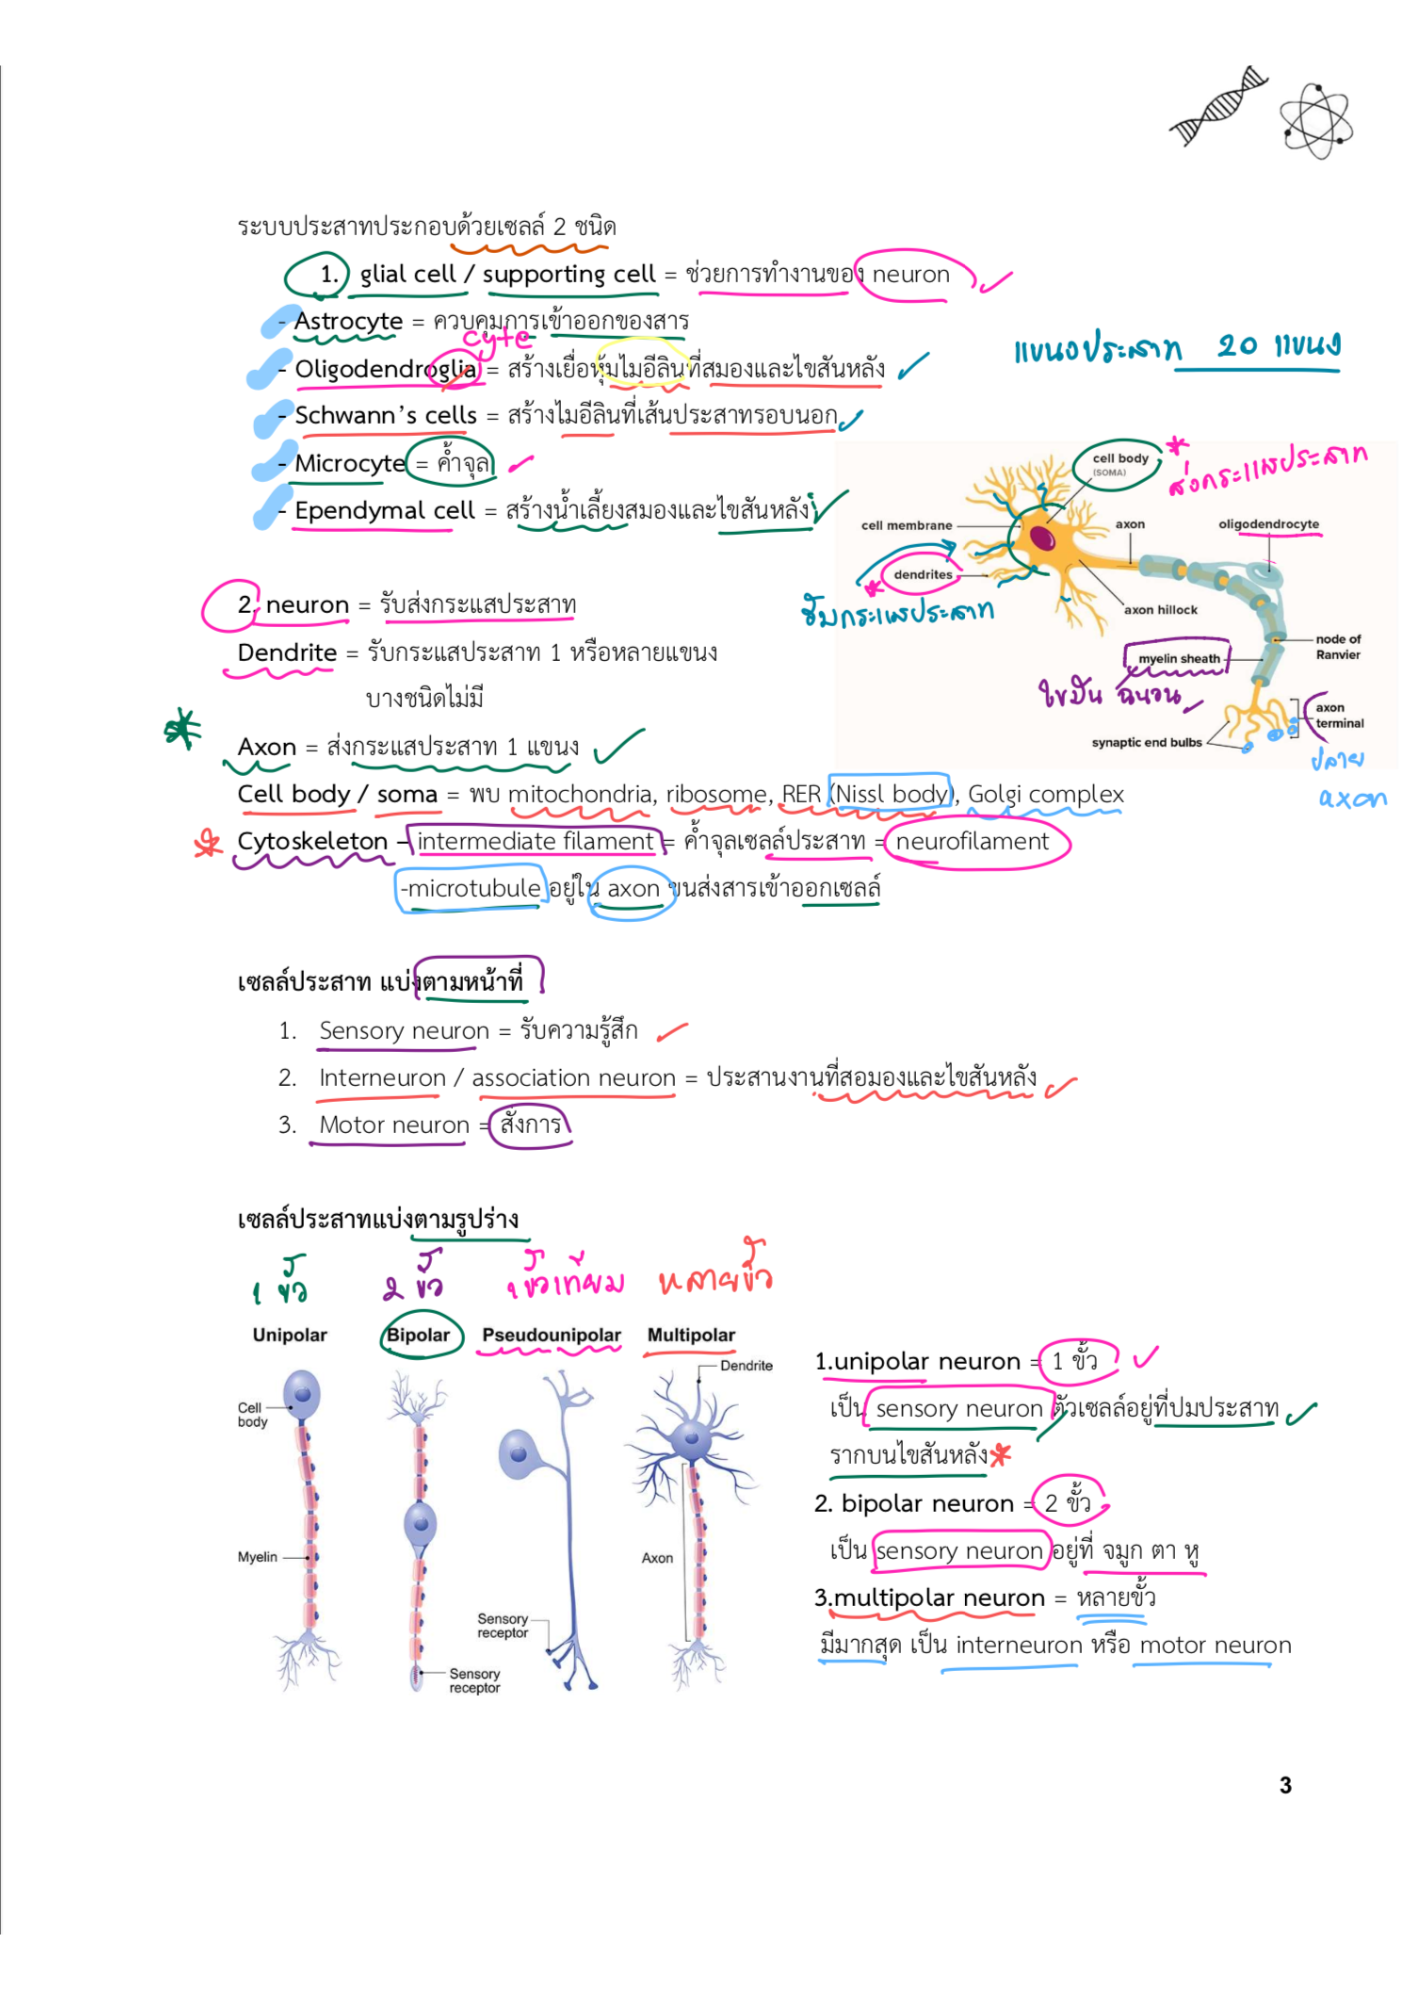 ระบบประสาทประกอบด้วยเซลล์ 2 ชนิด
1. glial cell / supporting cell = ช่วยการทำงานของ neuron
- Astrocyte = ควบคุมการเข้าออกของสาร
cyte
- Oligodendroglia = สร้างเยื่อหุ้มไมอีลินที่สมองและไขสันหลัง
- Schwann's cells = สร้างไมอีลินที่เส้นประสาทรอบนอก
- Microcyte = ค้ำจุล
- Ependymal cell = สร้างน้ำเลี้ยงสมองและไขสันหลัง
แขนงประสาท 20 แขนง
cell body
(SOMA)
ส่งกระแสประสาท
cell membrane
axon
oligodendrocyte
dendrites
axon hillock
node of
Ranvier
myelin sheath
ไขมัน ฉนวน
axon
terminal
synaptic end bulbs
ปลาย
axon
2. neuron = รับส่งกระแสประสาท
Dendrite = รับกระแสประสาท 1 หรือหลายแขนง
บางชนิดไม่มี
Axon = ส่งกระแสประสาท 1 แขนง
Cell body / soma = พบ mitochondria, ribosome, RER (Nissl body), Golgi complex
Cytoskeleton – intermediate filament = ค้ำจุลเซลล์ประสาท = neurofilament
-microtubule อยู่ใน axon ขนส่งสารเข้าออกเซลล์
เซลล์ประสาท แบ่งตามหน้าที่
1. Sensory neuron = รับความรู้สึก
2. Interneuron / association neuron = ประสานงานที่สอมองและไขสันหลัง
3. Motor neuron = สั่งการ
เซลล์ประสาทแบ่งตามรูปร่าง
1 ขั้ว 2 ขั้ว 1 ขั้วเทียม หลายขั้ว
Unipolar Bipolar Pseudounipolar Multipolar
Dendrite
Cell
body
Myelin
Axon
Sensory
receptor
Sensory
receptor
1.unipolar neuron = 1 ขั้ว
เป็น sensory neuron ตัวเซลล์อยู่ที่ปมประสาท
รากบนไขสันหลัง
2. bipolar neuron = 2 ขั้ว
เป็น sensory neuron อยู่ที่ จมูก ตา หู
3.multipolar neuron = หลายขั้ว
มีมากสุด เป็น interneuron หรือ motor neuron
3